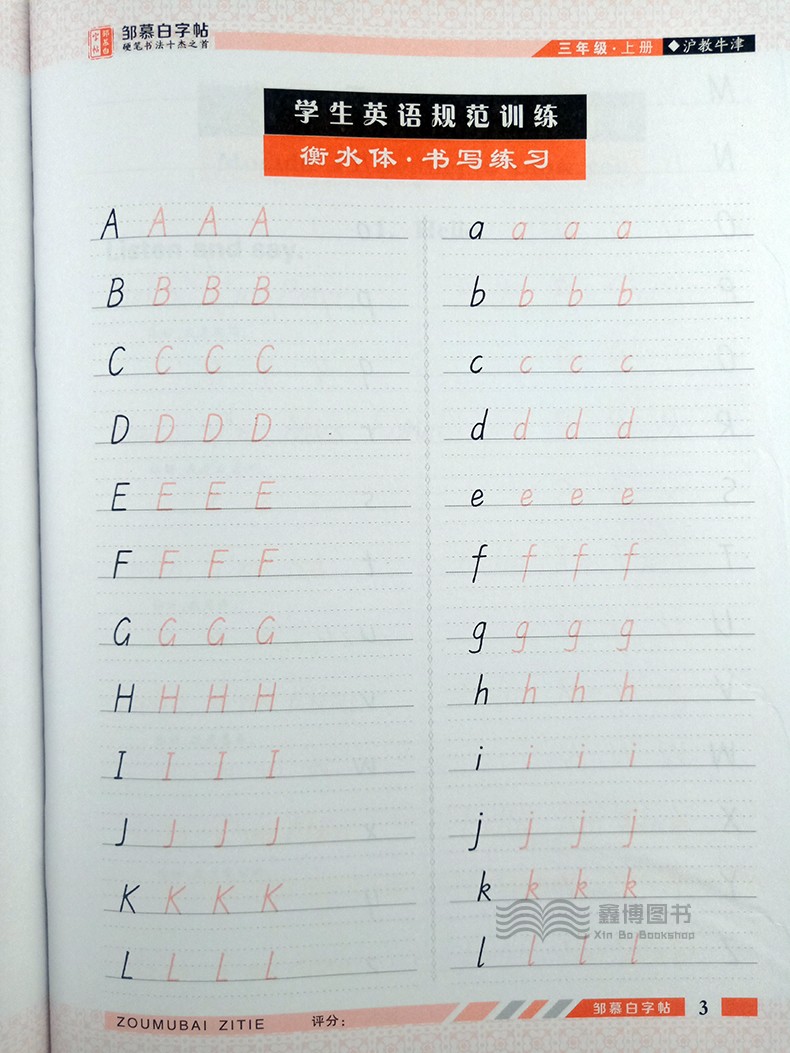 邹慕白字帖
邹慕白字帖
硬笔书法十杰之首
三年级·上册 ◆沪教牛津
学生英语规范训练
衡水体·书写练习
A A A A a a a a
B B B B b b b b
C C C C c c c c
D D D D d d d d
E E E E e e e e
F F F F f f f f
G G G G g g g g
H H H H h h h h
I I I I i i i i
J J J J j j j j
K K K K k k k k
L L L L l l l l
鑫博图书
Xin Bo Bookshop
ZOUMUBAI ZITIE 评分: 邹慕白字帖 3